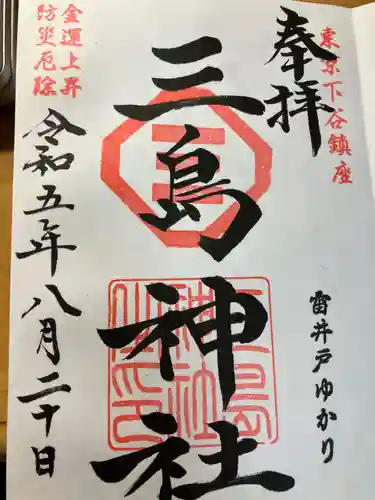 東京下谷鎮座
奉拝
雷井戸ゆかり
三島神社
金運上昇
防災厄除
令和五年八月二十日